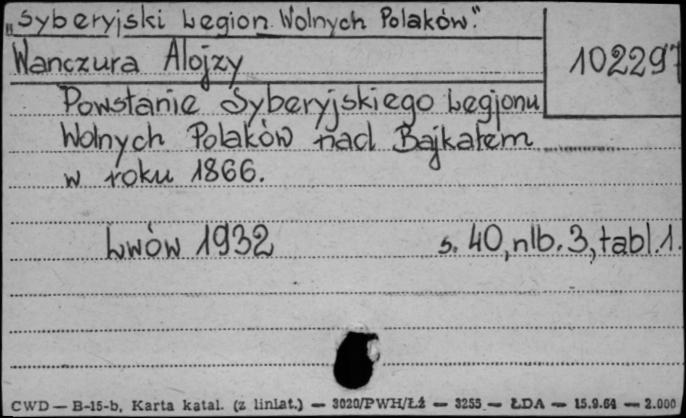 „Syberyjski Legion Wolnych Polaków."
Wanczura Alojzy
102297
Powstanie Syberyjskiego Legjonu
Wolnych Polaków nad Bajkałem
w roku 1866.
Lwów 1932 s. 40, nlb. 3, tabl. 1.
CWD — B-15-b, Karta katal. (z liniat.) — 3020/PWH/Łź — 3255 — ŁDA — 15.9.64 — 2.000